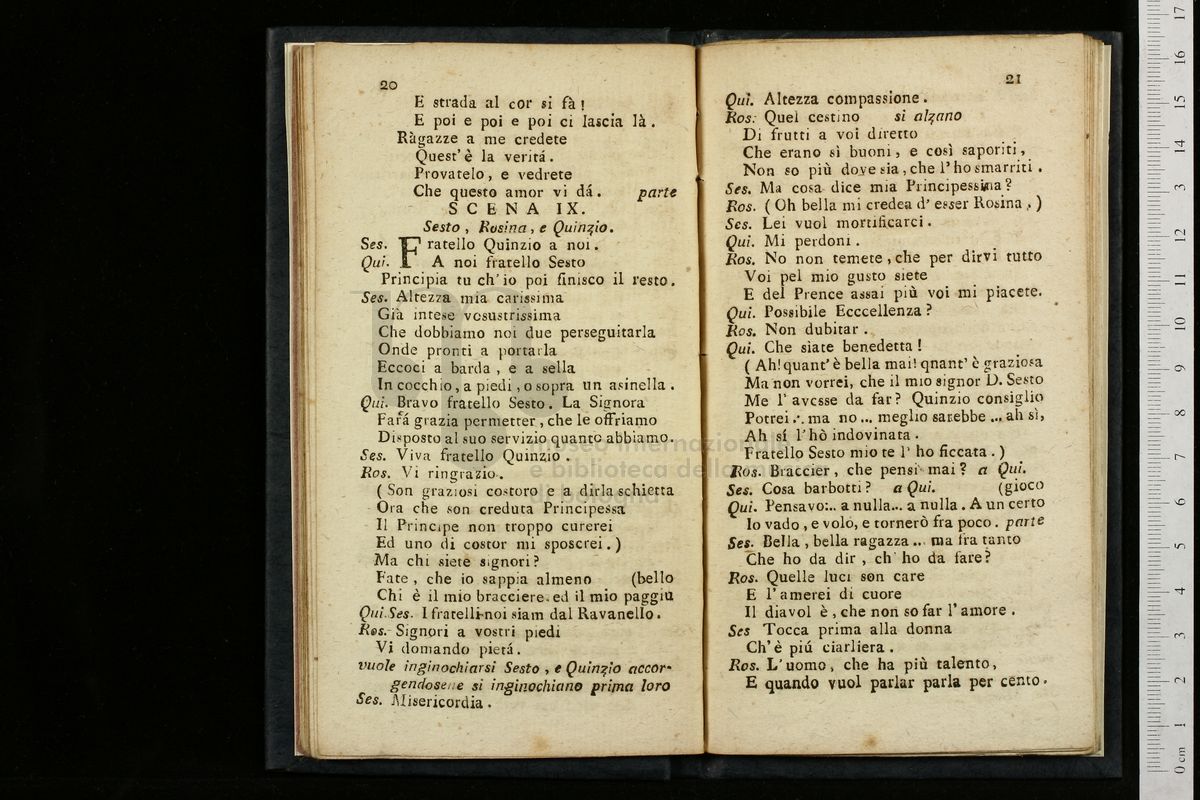 20
E strada al cor si fà!
E poi e poi e poi ci lascia là.
Ràgazze a me credete
Quest' è la veritá.
Provatelo, e vedrete
Che questo amor vi dá. parte
SCENA IX.
Sesto, Rosina, e Quinzio.
Ses. Fratello Quinzio a noi.
Qui. A noi fratello Sesto
Principia tu ch' io poi finisco il resto.
Ses. Altezza mia carissima
Già intese vosustrissima
Che dobbiamo noi due perseguitarla
Onde pronti a portarla
Eccoci a barda, e a sella
In cocchio, a piedi, o sopra un asinella.
Qui. Bravo fratello Sesto. La Signora
Fará grazia permetter, che le offriamo
Disposto al suo servizio quanto abbiamo.
Ses. Viva fratello Quinzio.
Ros. Vi ringrazio.
(Son graziosi costoro e a dirla schietta
Ora che son creduta Principessa
Il Principe non troppo curerei
Ed uno di costor mi sposerei.)
Ma chi siete signori?
Fate, che io sappia almeno (bello
Chi è il mio bracciere ed il mio paggiu
Qui.Ses. I fratelli noi siam dal Ravanello.
Ros. Signori a vostri piedi
Vi domando pietá.
vuole inginochiarsi Sesto, e Quinzio accor-
gendosene si inginochiano prima loro
Ses. Misericordia.
21
Qui. Altezza compassione.
Ros. Quel cestino si alzano
Di frutti a voi diretto
Che erano sì buoni, e così saporiti,
Non so più dove sia, che l' ho smarriti.
Ses. Ma cosa dice mia Principessina?
Ros. (Oh bella mi credea d' esser Rosina.)
Ses. Lei vuol mortificarci.
Qui. Mi perdoni.
Ros. No non temete, che per dirvi tutto
Voi pel mio gusto siete
E del Prence assai più voi mi piacete.
Qui. Possibile Ecccellenza?
Ros. Non dubitar.
Qui. Che siate benedetta!
(Ah! quant' è bella mai! qnant' è graziosa
Ma non vorrei, che il mio signor D. Sesto
Me l' avesse da far? Quinzio consiglio
Potrei ... ma no ... meglio sarebbe ... ah sì,
Ah sí l' hò indovinata.
Fratello Sesto mio te l' ho ficcata.)
Ros. Braccier, che pensi mai? a Qui.
Ses. Cosa barbotti? a Qui. (gioco
Qui. Pensavo... a nulla... a nulla. A un certo
Io vado, e volo, e tornerò fra poco. parte
Ses. Bella, bella ragazza ... ma fra tanto
Che ho da dir, ch' ho da fare?
Ros. Quelle luci son care
E l' amerei di cuore
Il diavol è, che non so far l' amore.
Ses Tocca prima alla donna
Ch' è piú ciarliera.
Ros. L' uomo, che ha più talento,
E quando vuol parlar parla per cento.
museo internazionale
e biblioteca della musica
di bologna
0 cm 1 2 3 4 5 6 7 8 9 10 11 12 13 14 15 16 17